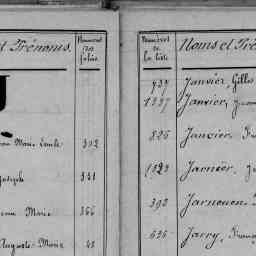 et Prénoms.
Numéros
des
folios
Marie Emile 302
Joseph 331
Marie 366
Auguste Marie
Numéros
de
la liste
Noms et Pré
739 Janvier, Gilles
1337 Janvier,
825 Janvier,
1323 Jarnier, J
393 Jarnouen
636 Jarry, Franç